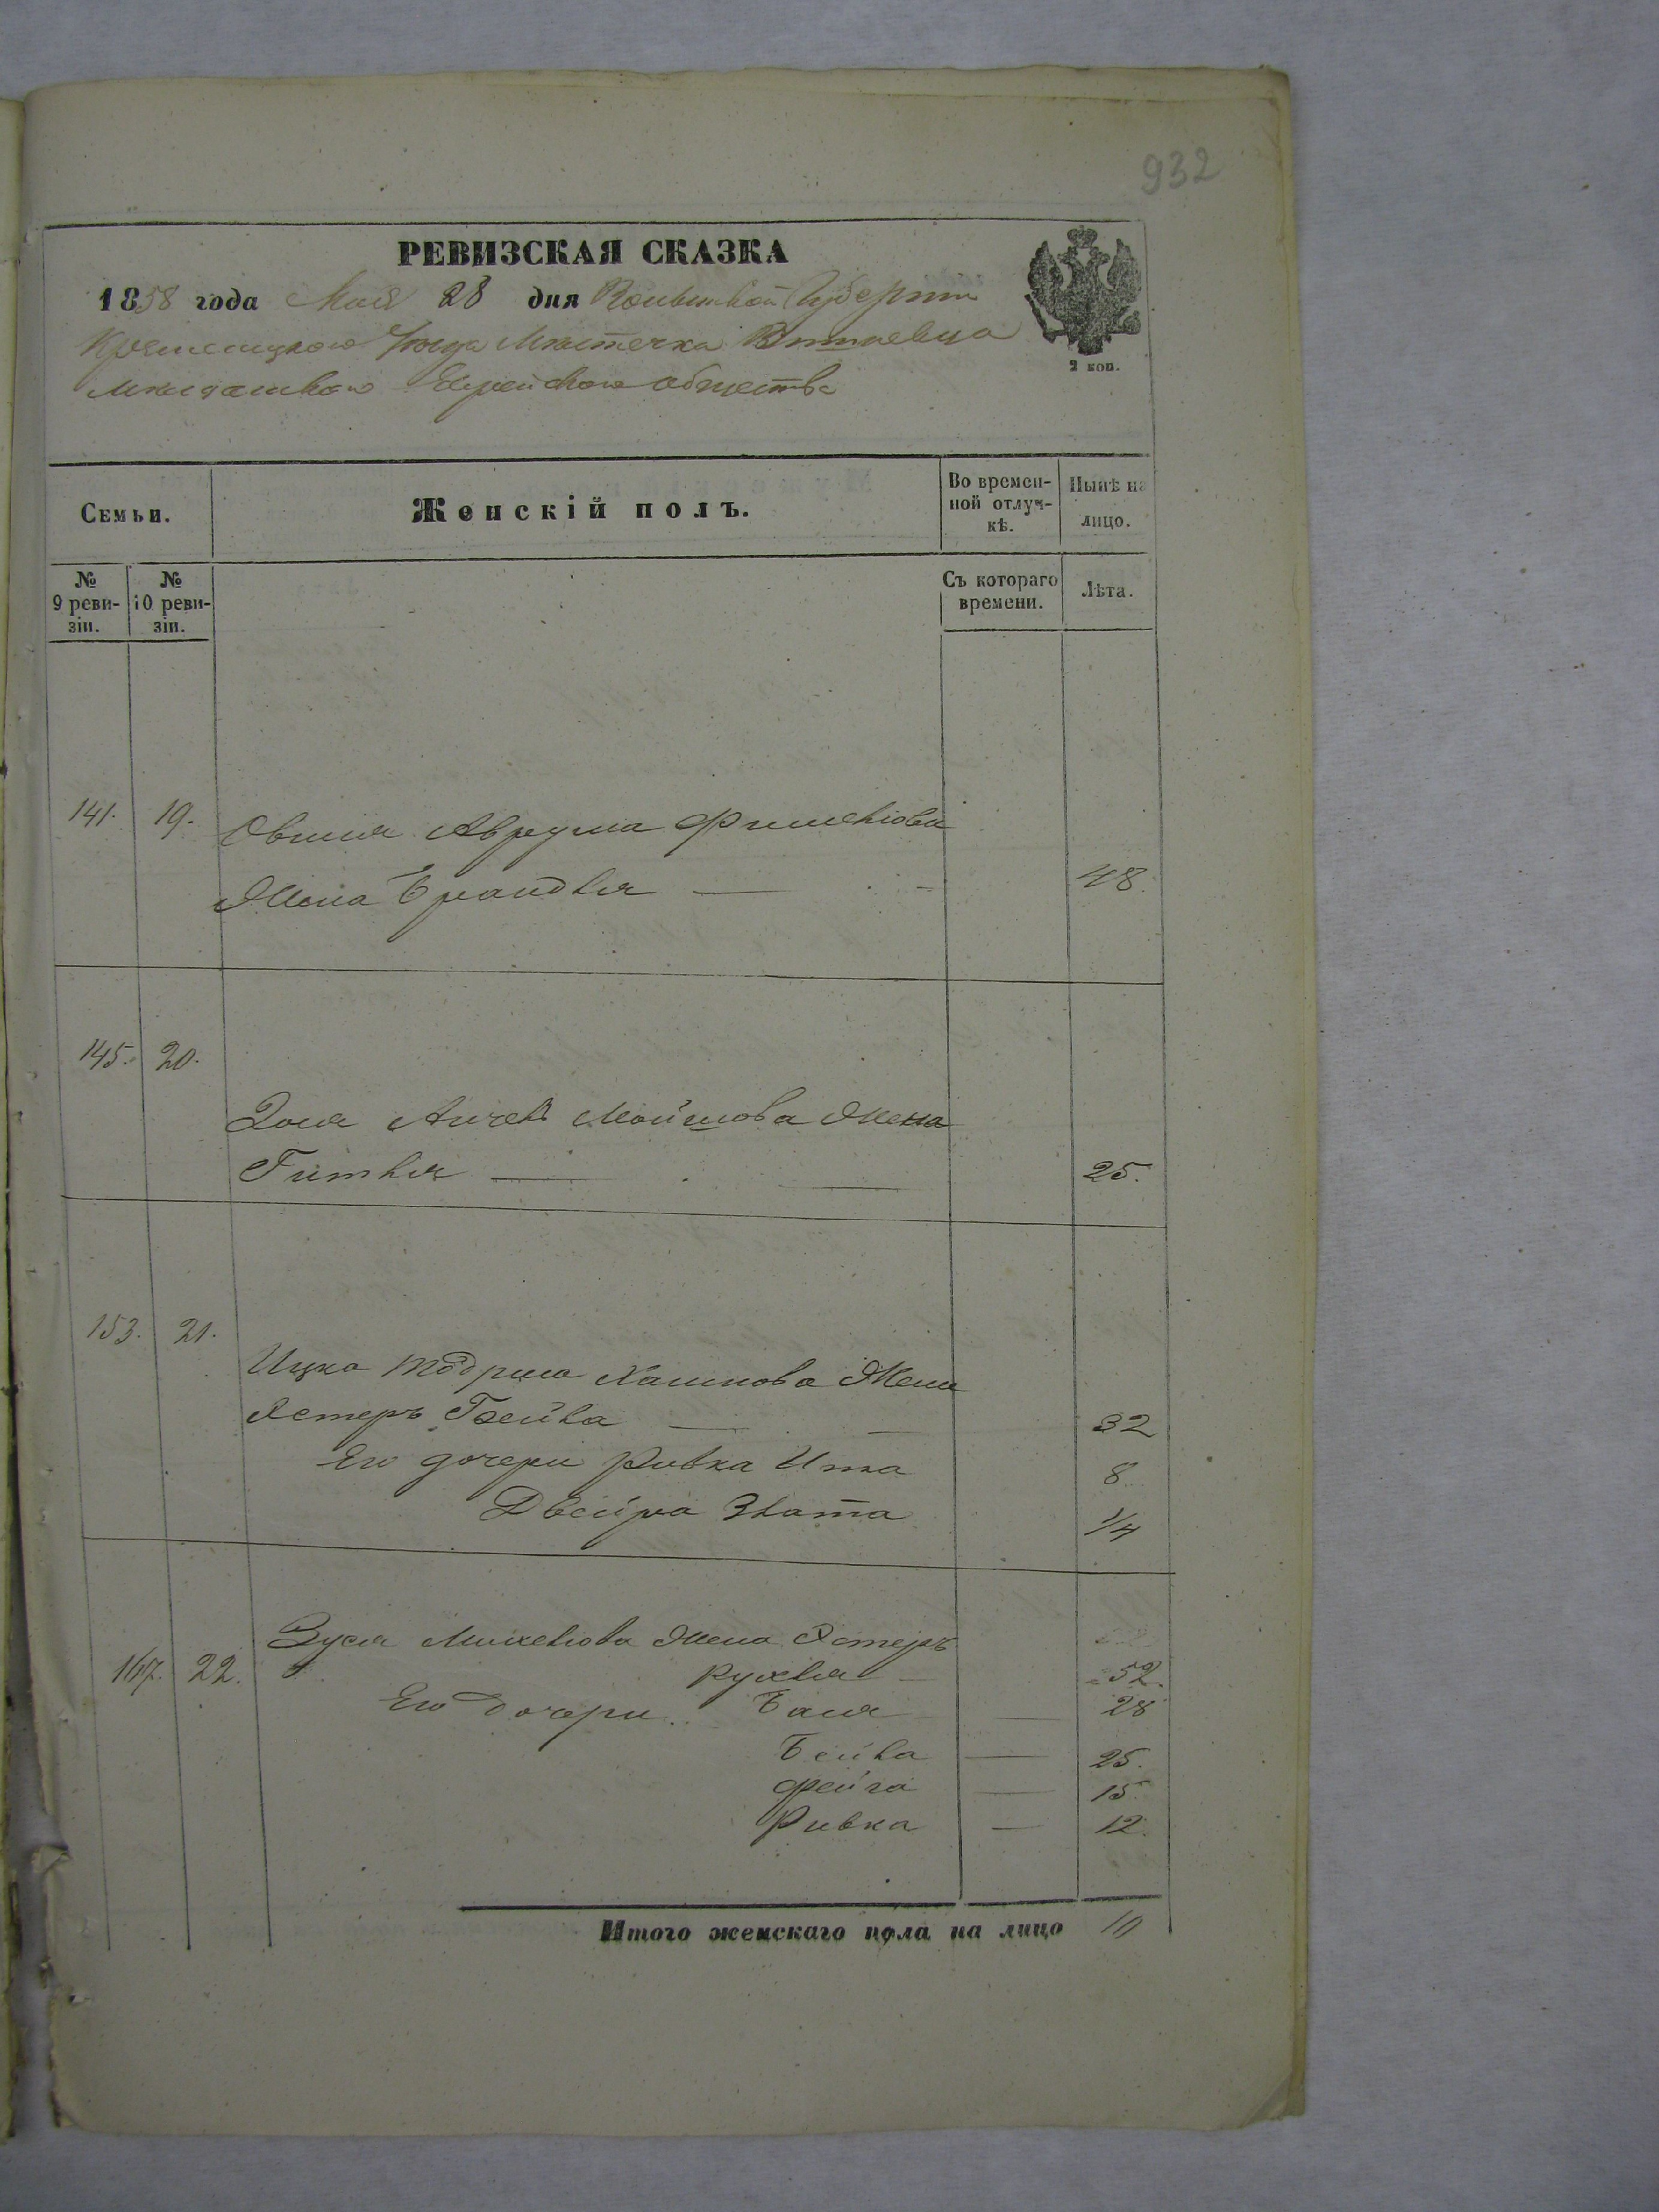 932
РЕВИЗСКАЯ СКАЗКА
1858 года Мая 28 дня Волынской Губернии
Кременецкого Уезда Местечка
Мещанского Еврейского общества
2 коп.
Семьи.
Женскій полъ.
Во времен-
ной отлуч-
кѣ.
Нынѣ на
лицо.
№
9 реви-
зіи.
№
10 реви-
зіи.
Съ котораго
времени.
Лѣта.
141. 19. Овшия Аврума Фишелiова
Жена Брандля 48.
145. 20.
Зося Мойшова Жена
Гитля 25.
153. 21.
Ицка Тодриса Хаимова Жена
Эстеръ Бейла 32
Его дочери Ривка Ита 8
Двейра Злата 1/4
167. 22. Зуся Михелiова Жена Эстеръ
Рухля 52.
Его дочери Бася 28
Бейла 25.
Фейга 15.
Ривка 12.
Итого женскаго пола на лицо 10